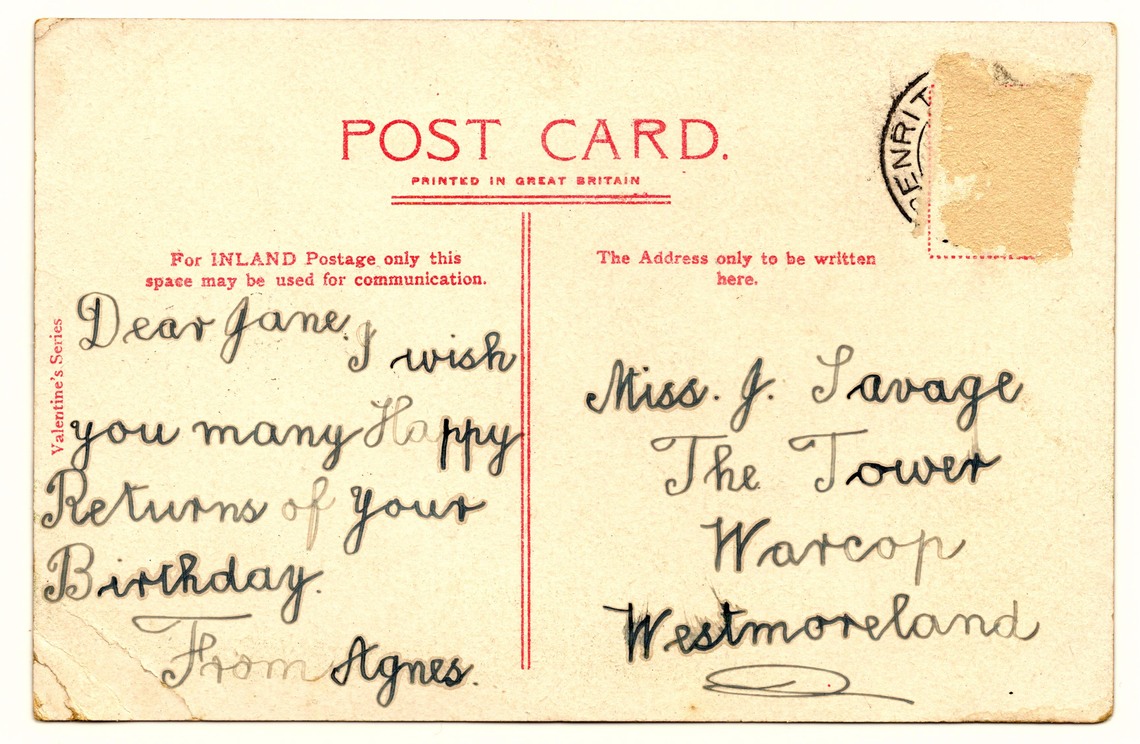 POST CARD.
PRINTED IN GREAT BRITAIN
For INLAND Postage only this
space may be used for communication.
The Address only to be written
here.
Valentine's Series
Dear Jane. I wish
you many Happy
Returns of your
Birthday.
From Agnes.
Miss. J. Savage
The Tower
Warcop
Westmoreland